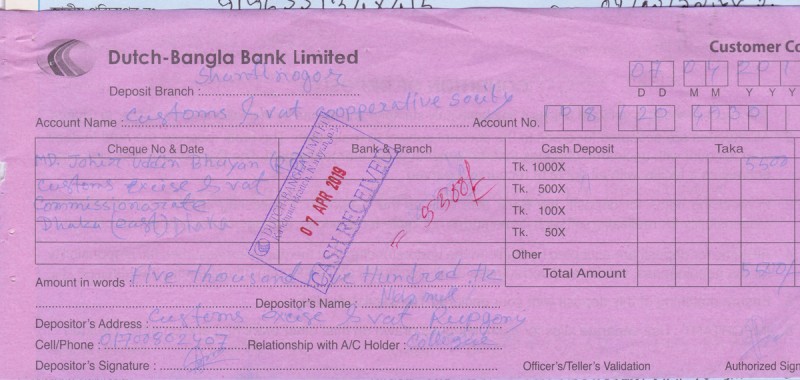 Dutch-Bangla Bank Limited
Customer Co
Deposit Branch : Shantinogor
07 04 201
D D M M Y Y Y
Account Name : Customs & vat cooperative souity
Account No. 108 120
Cheque No & Date Bank & Branch Cash Deposit Taka
MD. Johir Uddin Bhuyan
Customs excise & vat
Commissionarate
Dhaka (east) Dhaka
Tk. 1000X 5500
Tk. 500X
Tk. 100X
Tk. 50X
Other
Total Amount 5500/
DUTCH-BANGLA BANK LIMITED
07 APR 2019
CASH RECEIVED
5500/
Amount in words : Five thousand Five Hundred tk
Depositor's Name :
Depositor's Address : Customs excise & vat Rupgonj
Cell/Phone : 01700802407 Relationship with A/C Holder : Colleague
Depositor's Signature :
Officer's/Teller's Validation
Authorized Sign